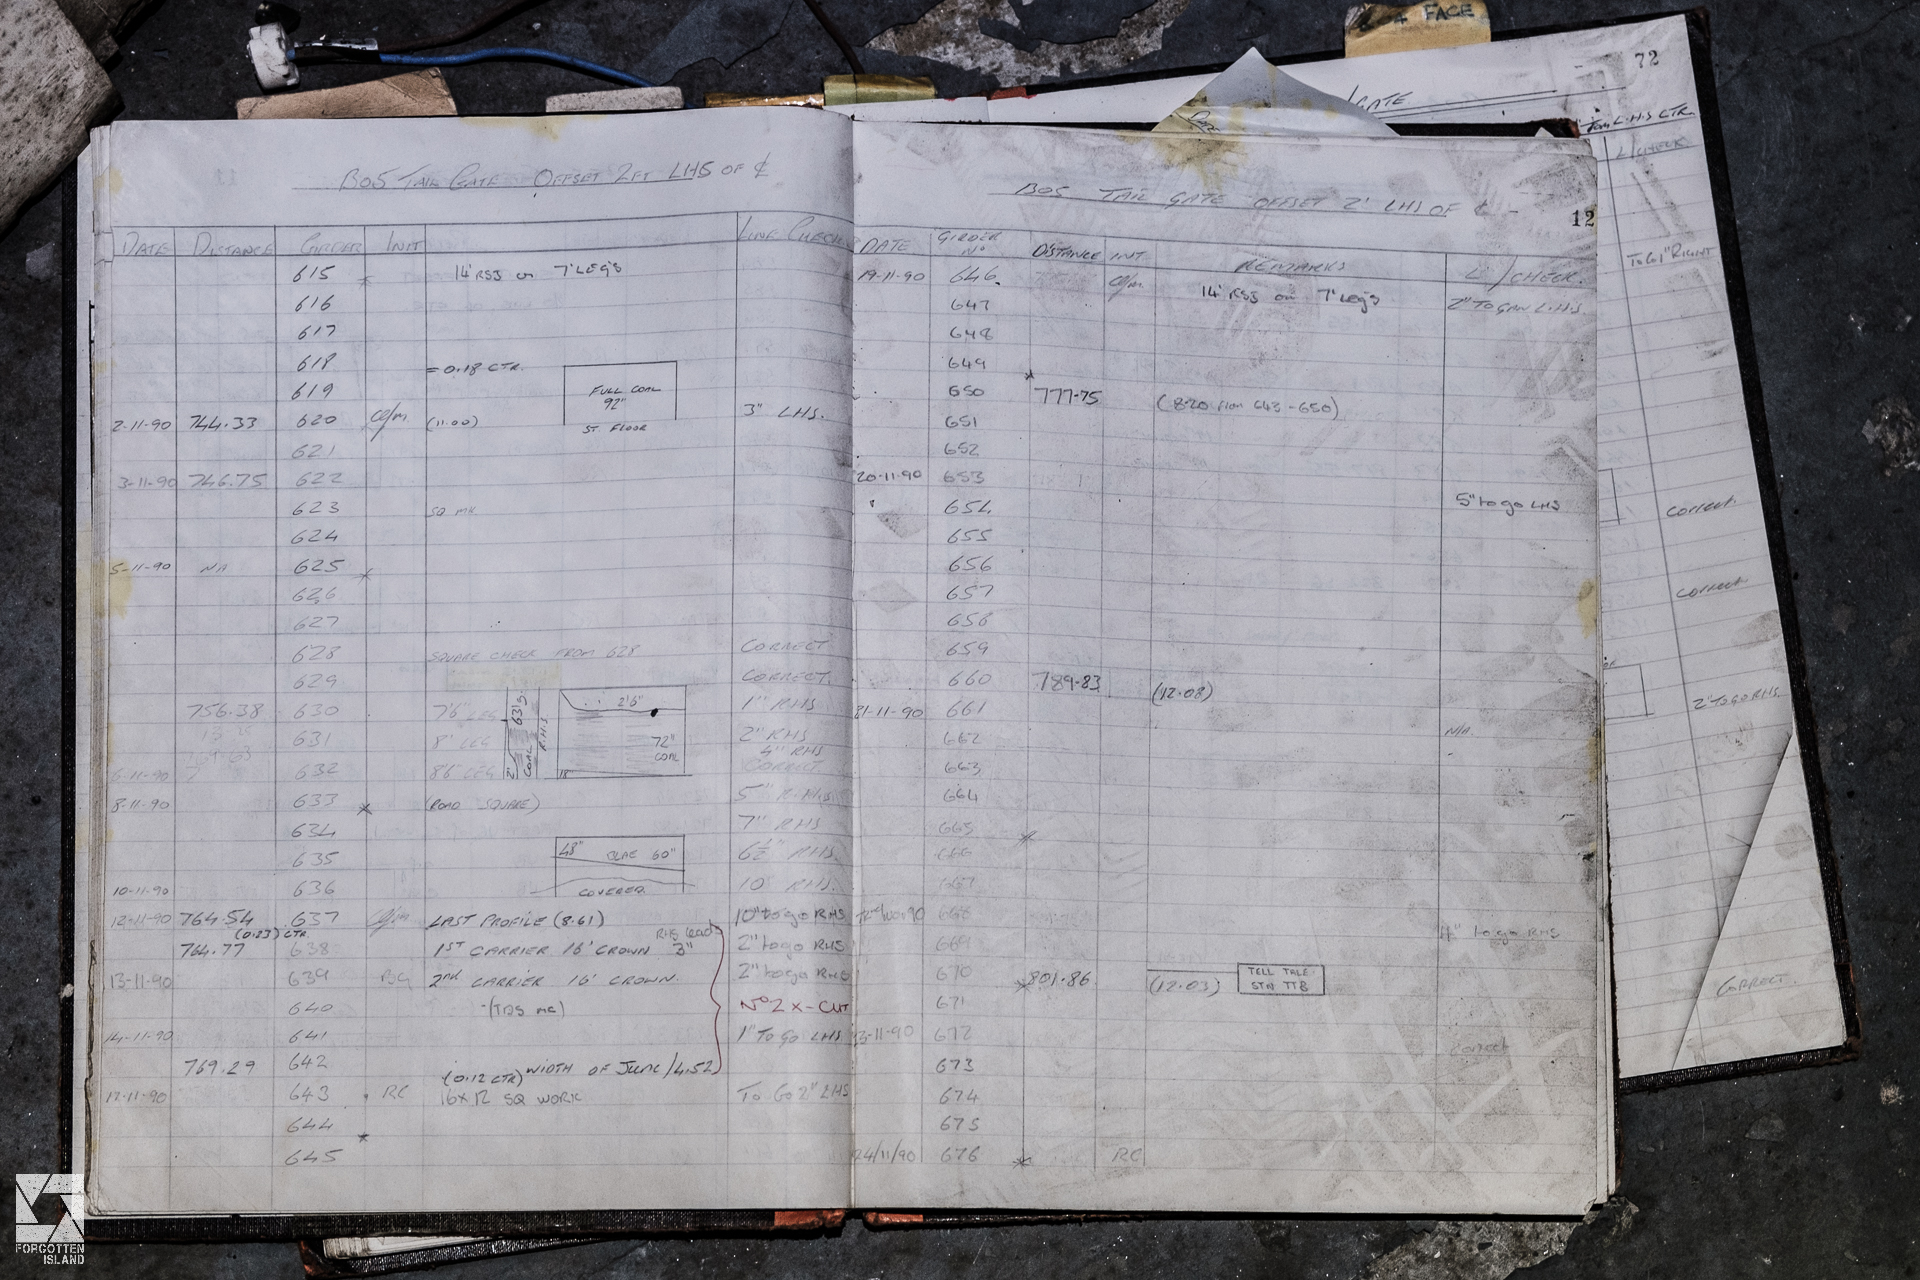 4 FACE
72
/GATE
L.H.S CTR.
L/CHECK
TO GO 1" RIGHT
CORRECT.
CORRECT.
2" TO GO RHS.
CORRECT.
BO5 TAIL GATE OFFSET 2FT LHS OF ℄
DATE DISTANCE GIRDER INIT LINE CHECK
615 * 14' RSJ on 7' LEG'S
616
617
618 = 0.18 CTR.
619 FULL COAL 92"
2-11-90 744.33 620 (11.00) 3" LHS.
ST. FLOOR
621
3-11-90 746.75 622
623 SQ MK
624
5-11-90 N/A 625 *
626
627
628 SQUARE CHECK FROM 628 CORRECT
629 CORRECT.
756.38 630 7'6" LEG 2'6" 1" RHS
631 8' LEG 72" COAL 2" RHS
4" RHS
6-11-90 632 8'6" LEG 2' COAL R.H.S. 18" CORRECT
8-11-90 633 * (ROAD SQUARE) 5" R.H.S
634 7" RHS
635 48" 60" 6½" RHS.
10-11-90 636 COVERED. 10 RHS.
12-11-90 764.54 637 LAST PROFILE (8.61) 10" to go RHS
(0.23) CTR RHS Lead
764.77 638 1ST CARRIER 16' CROWN 3" 2" to go RHS
13-11-90 639 2nd CARRIER 16' CROWN. 2" to go RHS
640 Nº 2 X-CUT
14-11-90 641 1" To go LHS
769.29 642
(0.12 CTR) WIDTH OF JUNC/4.52)
17-11-90 643 RC 16x12 SQ WORK To Go 2" LHS
644 *
645
BO5 TAIL GATE OFFSET 2' LHS OF ℄
12
DATE GIRDER Nº DISTANCE INT. REMARKS L/CHECK.
19-11-90 646 14' RSJ on 7' Leg's
647 2" TO GAN L.H.S
648
649 *
650 777.75 (8.20 from 643-650)
651
652
20-11-90 653
654 5" to go LHS
655
656
657
658
659
660 789-83 (12.08)
21-11-90 661
662 N/A
663
664
665 *
666
667
668
669 4" to go RHS
670 * 801.86 (12.03) TELL TALE STN TTB
671
672
673 correct
674
675
24/11/90 676 * RC
FORGOTTEN
ISLAND